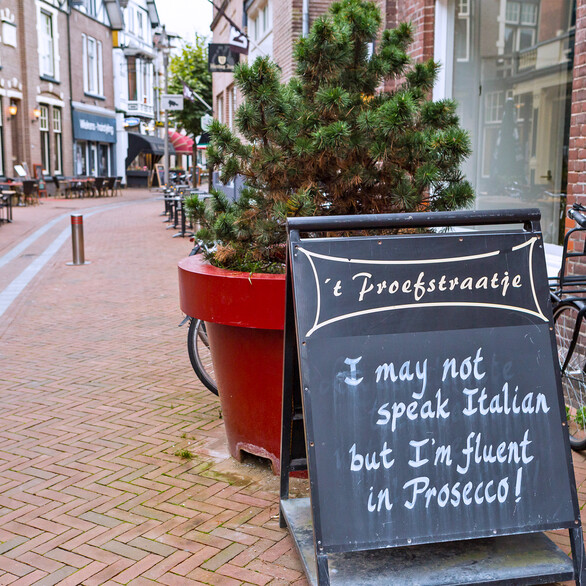 't Proefstraatje
I may not
speak Italian
but I'm fluent
in Prosecco!